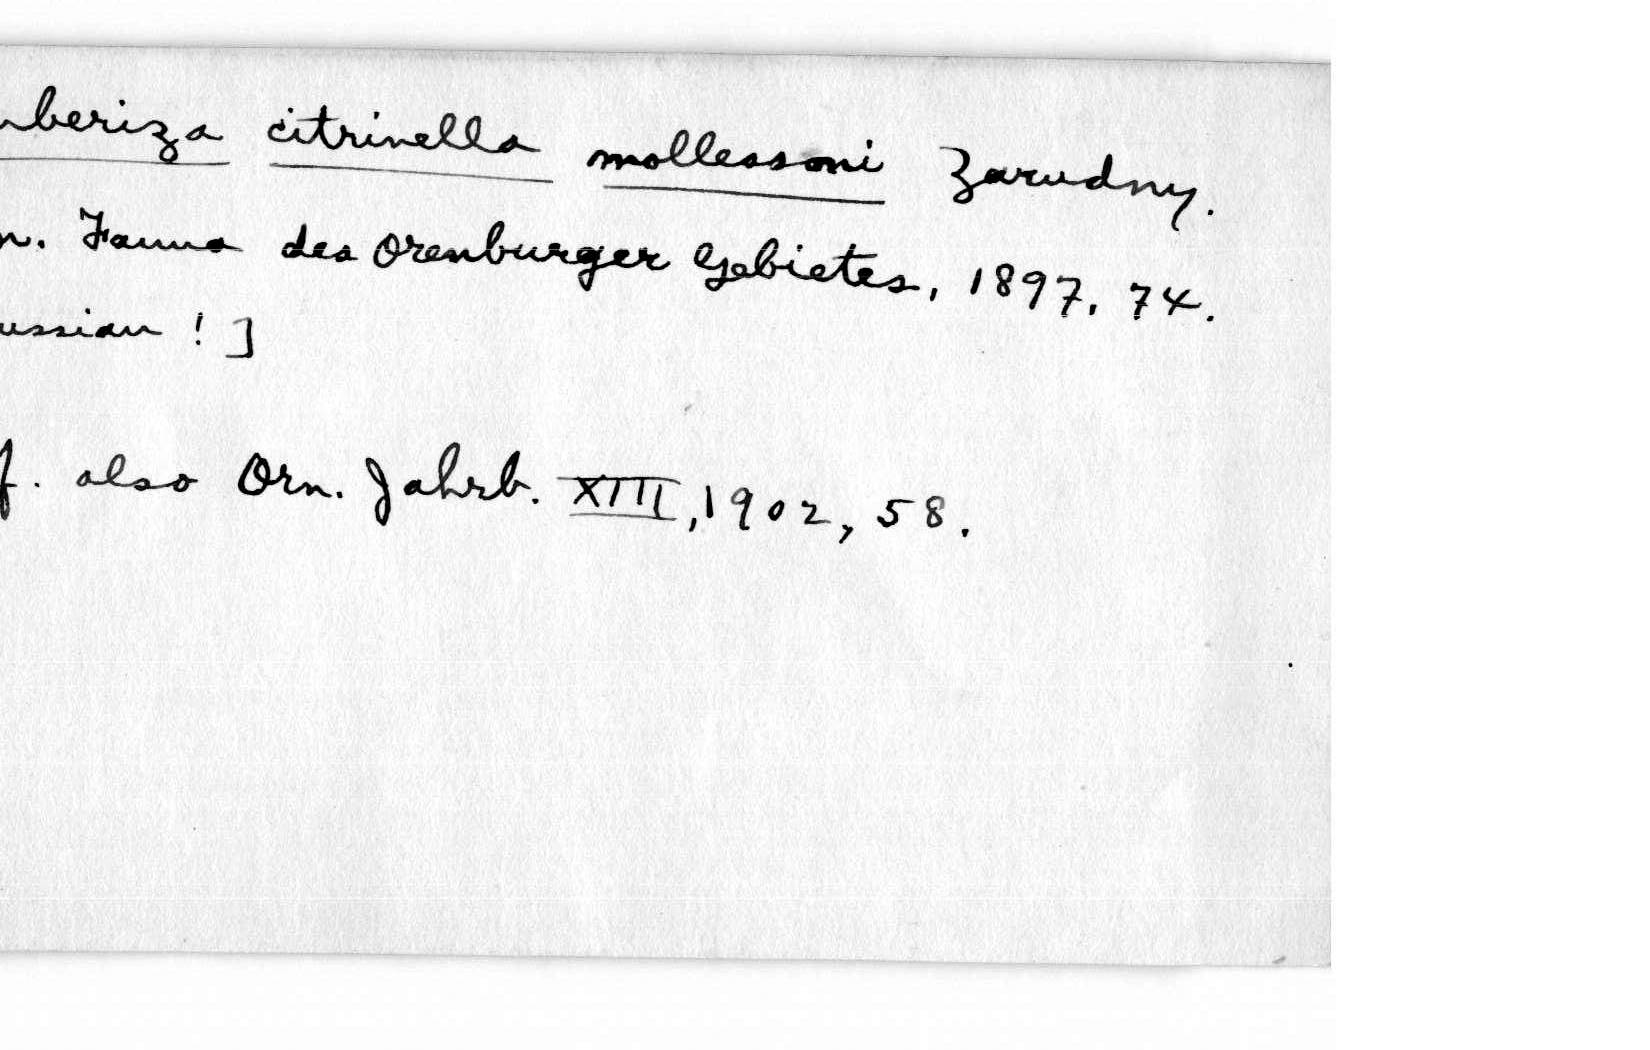 mberiza citrinella mollessoni Zarudny.
n. Fauna des Orenburger Gebietes, 1897, 74.
ussian ! ]
f. also Orn. Jahrb. XIII, 1902, 58.